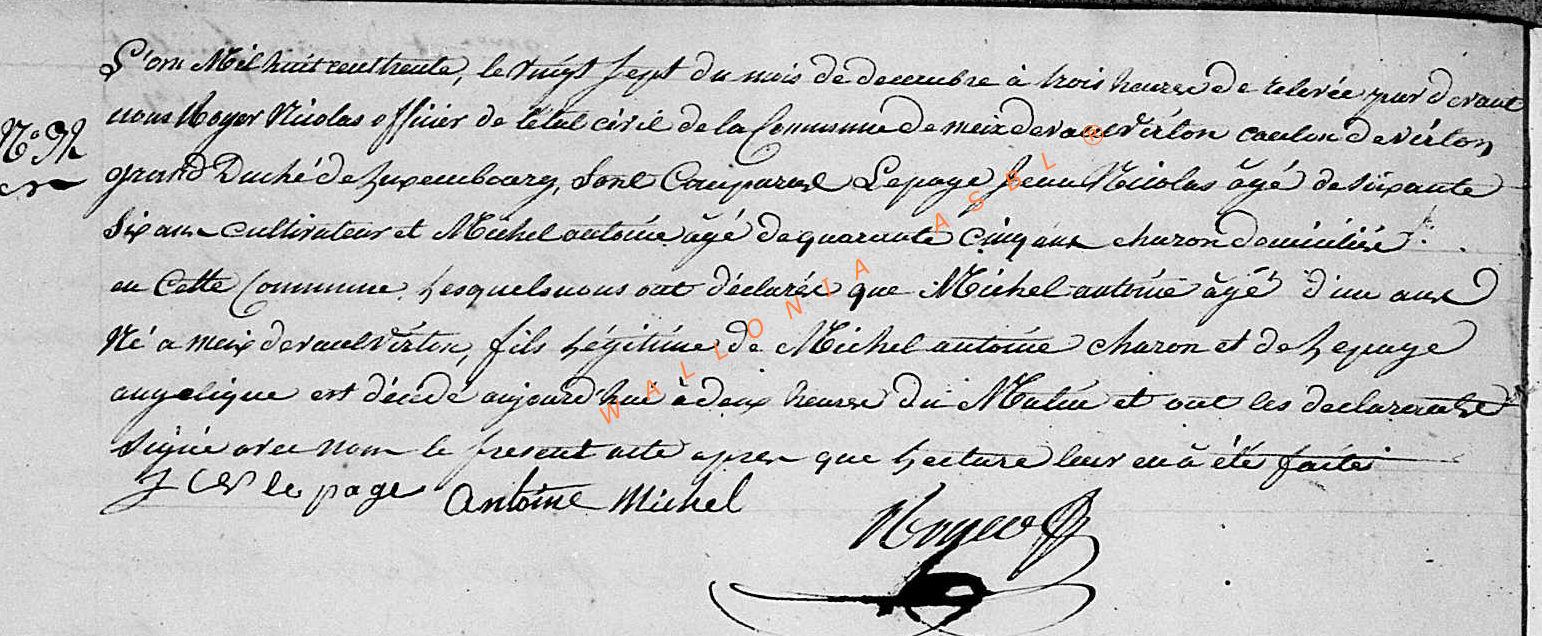 L'an Mil huit cent trente, le vingt sept du mois de decembre à trois heures de relevée par devant
nous Royer Nicolas officier de l'etat civil de la Commune de meix devant virton canton de virton
grand Duché de Luxembourg, Sont Comparus Lepage Jean Nicolas âgé de soixante
Six ans cultivateur et Michel antoine âgé de quarante cinq ans charon domiciliés
en Cette Commune. Lesquels nous ont déclarés que Michel antoine âgé d'un ans
Né a meix devant virton, fils Légitime de Michel antoine charon et de Lepage
angelique est décédé aujourd'hui à deux heures du Matin et ont les declarants
Signé avec nous le present acte apres que Lecture leur en à été faite
le page Antoine Michel
Royer
WALLONIA ASBL ®